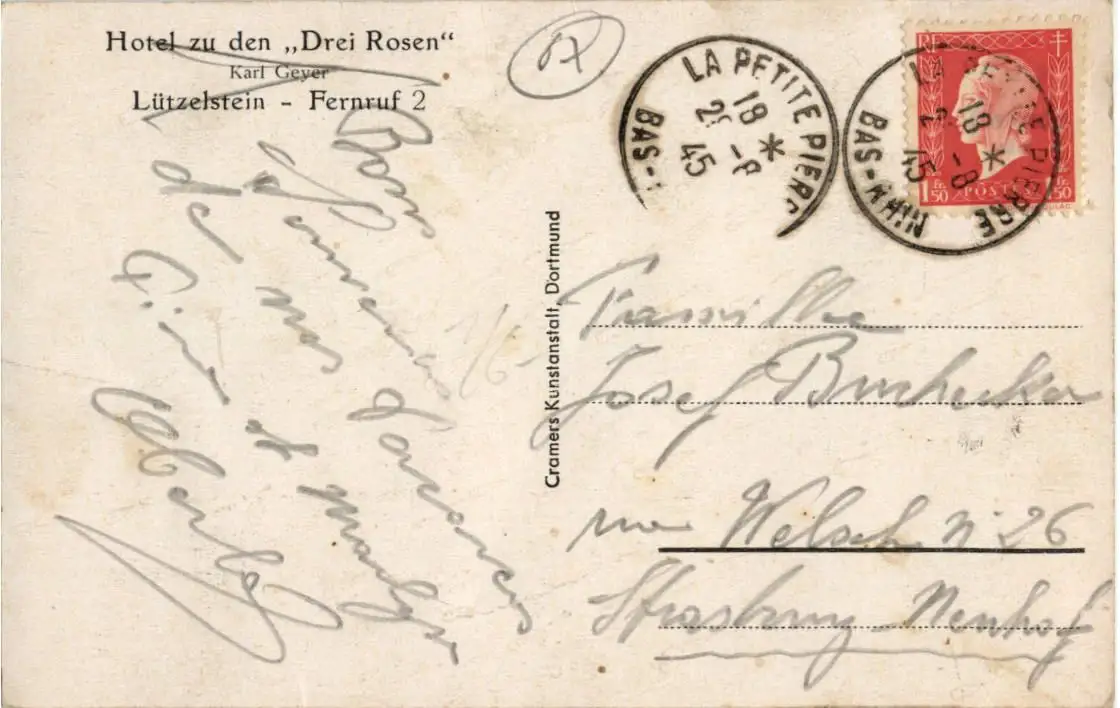 Hotel zu den „Drei Rosen“
Karl Geyer
Lützelstein - Fernruf 2
Bons
Souvenirs
de nos vacances
et
Cramers Kunstanstalt, Dortmund
LA PETITE PIERRE
18 *
2 -8
45
BAS-RHIN
LA PETITE PIERRE
18 *
2 -8
45
BAS-RHIN
RF
1 Fr. 50
POSTES
1 Fr. 50
DULAC
Famille
Josef Buchecker
rue Welsch N° 26
Strasbourg-Neuhof